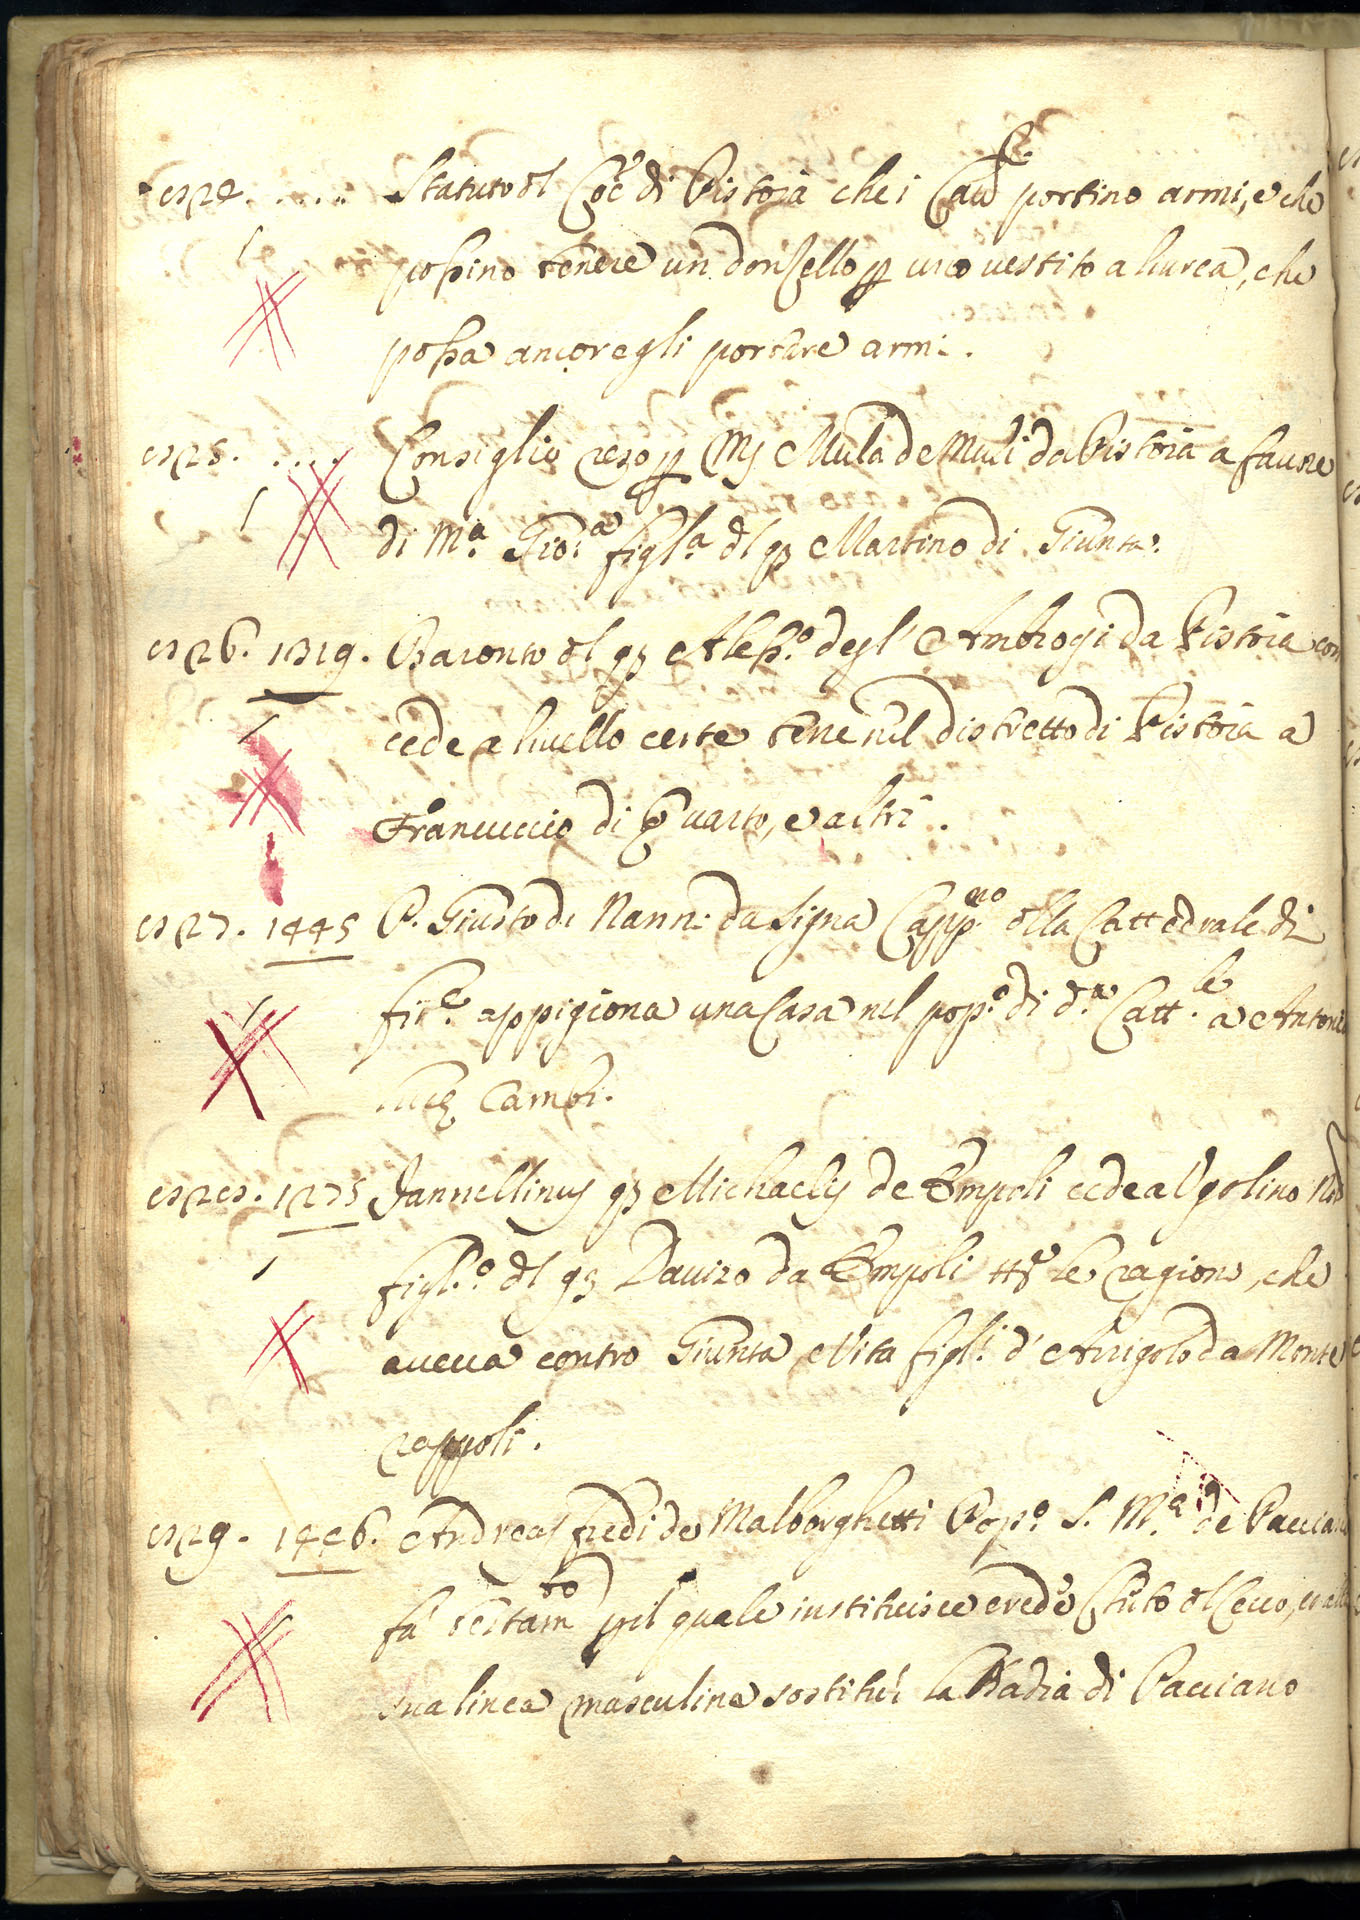 824. ..... Statuto dl Coe di Pistoia che i Cau.ri portino armi, e che
possino tenere un donzello p uno vestito a liurea, che
possa ancor egli portare armi.
825. .... Consiglio reso p Mʒ Mula de Muli da Pistoia a fauore
di M.a Gio.a figl.a dl qʒ Martino di Giunta.
826. 1319. Baronto dl qʒ Aless.o degl' Ambrogi da Pistoia con
cede a liuello certe terre nel distretto di Pistoia a
Franuccio di Quarto, e altri.
827. 1445 P. Giusto di Nanni da Signa Capp.no dlla Cattedrale di
fir.e appigiona una Casa nel pop.o di d.a Catt.le a Antonio
Cambi.
828. 1275 Jannellinus qʒ Michaelis de Empoli cede a Ugolino
figl.o dl qʒ Dauizo da Empoli tte le ragioni, che
aueua contro Giunta, e Vita figl.i d' Arrigolo da Monte
rappoli.
829. 1448. Andreas fredi de Malborghetti Pop.o S. M.a de Pacciano
fa testam.to p il quale instituisce erede Cristo dl Cecco,
sua linea masculina sostituì la Badia di Pacciano